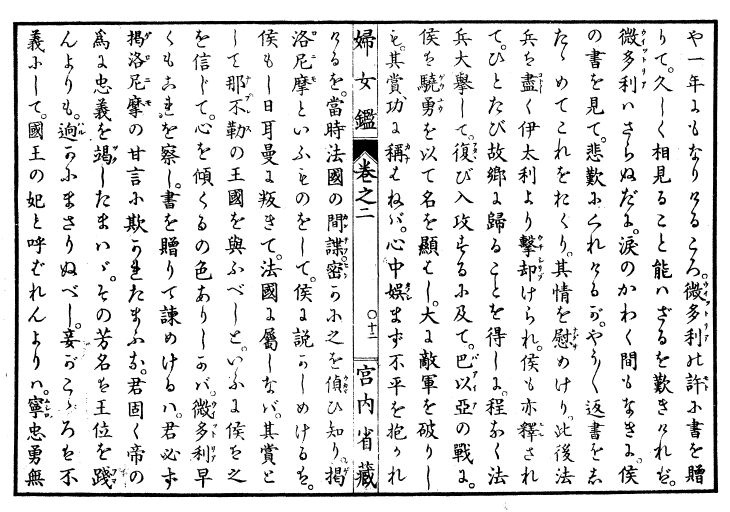 や一年にもなりけるころ。微多利の許に書を贈
りて。久しく相見ること能はざるを歎きければ。
微多利はさらぬだに。涙のかわく間もなきに。侯
の書を見て。悲歎にくれけるが。やうやく返書をし
たゝめてこれをおくり。其情を慰めけり。此後法
兵を盡く伊太利より擊却けられ。侯も亦釋され
て。ひとたび故鄕に歸ることを得しに。程なく法
兵大擧して。復び入攻するに及て。巴以亞の戰に。
侯を驍勇を以て名を顯はし。大に敵軍を破りし
も。其賞功に稱はねば。心中娯まず不平を抱かれ
婦女鑑 卷之二 〇十二 宮內省藏
けるを。當時法國の間諜密かに之を偵ひ知り。揭
洛尼摩といふものをして。侯に說かしめけるを。
侯もし日耳曼に叛きて。法國に屬しなば。其賞と
して那不勒の王國を與ふべしと。いふに侯を之
を信じて。心を傾くるの色ありしかば。微多利早
くもこれを察し。書を贈りて諫めけるは。君必ず
揭洛尼摩の甘言に欺かれたまふな。君固く帝の
爲に忠義を竭したまはゞ。その芳名を王位を踐
んよりも。逈かにまさりぬべし。妾がこゝろを不
義にして。國王の妃と呼ばれんよりは。寧忠勇無